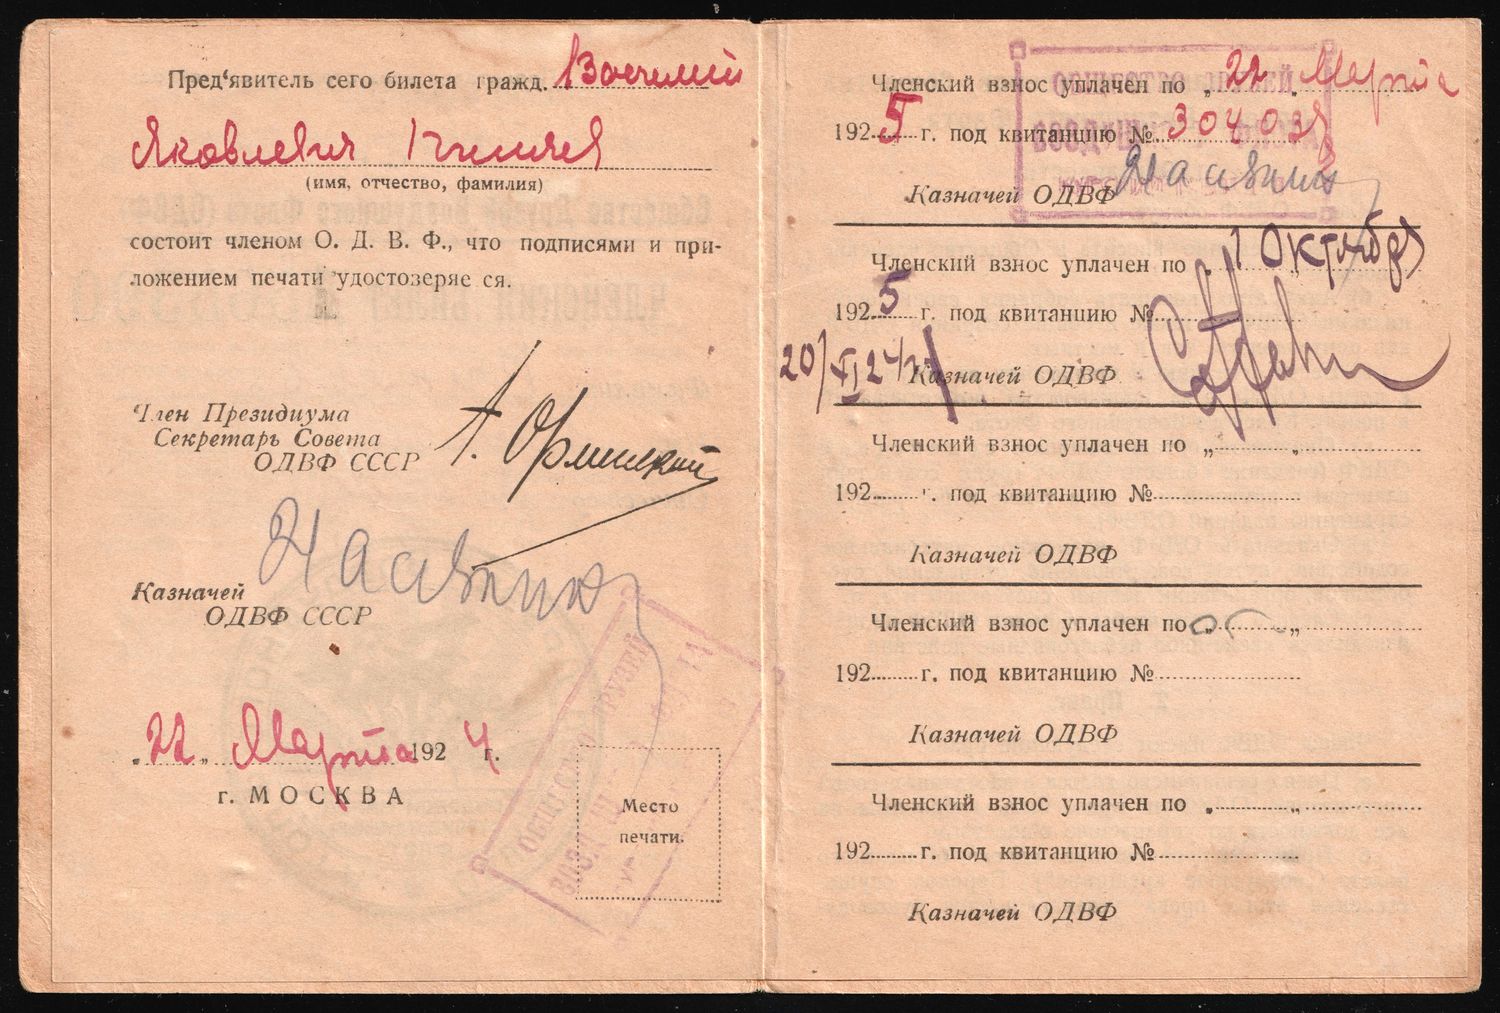 Пред'явитель сего билета гражд. Василий
Яковлевич
(имя, отчество, фамилия)
состоит членом О. Д. В. Ф., что подписями и при-
ложением печати удостоверяе ся.
Член Президиума
Секретарь Совета
ОДВФ СССР
Казначей
ОДВФ СССР
„22„ Марта 1924 г.
г. МОСКВА
Место
печати.
ОБЩЕСТВО ДРУЗЕЙ
Членский взнос уплачен по „22„ Марта
1925 г. под квитанцию №
Казначей ОДВФ
ОБЩЕСТВО ДРУЗЕЙ
ВОЗДУШНОГО ФЛОТА
Членский взнос уплачен по „1 Октября
1925 г. под квитанцию №
20/XI 24 г.
Казначей ОДВФ
Членский взнос уплачен по „ „
192 г. под квитанцию №
Казначей ОДВФ
Членский взнос уплачен по „ „
192 г. под квитанцию №
Казначей ОДВФ
Членский взнос уплачен по „ „
192 г. под квитанцию №
Казначей ОДВФ